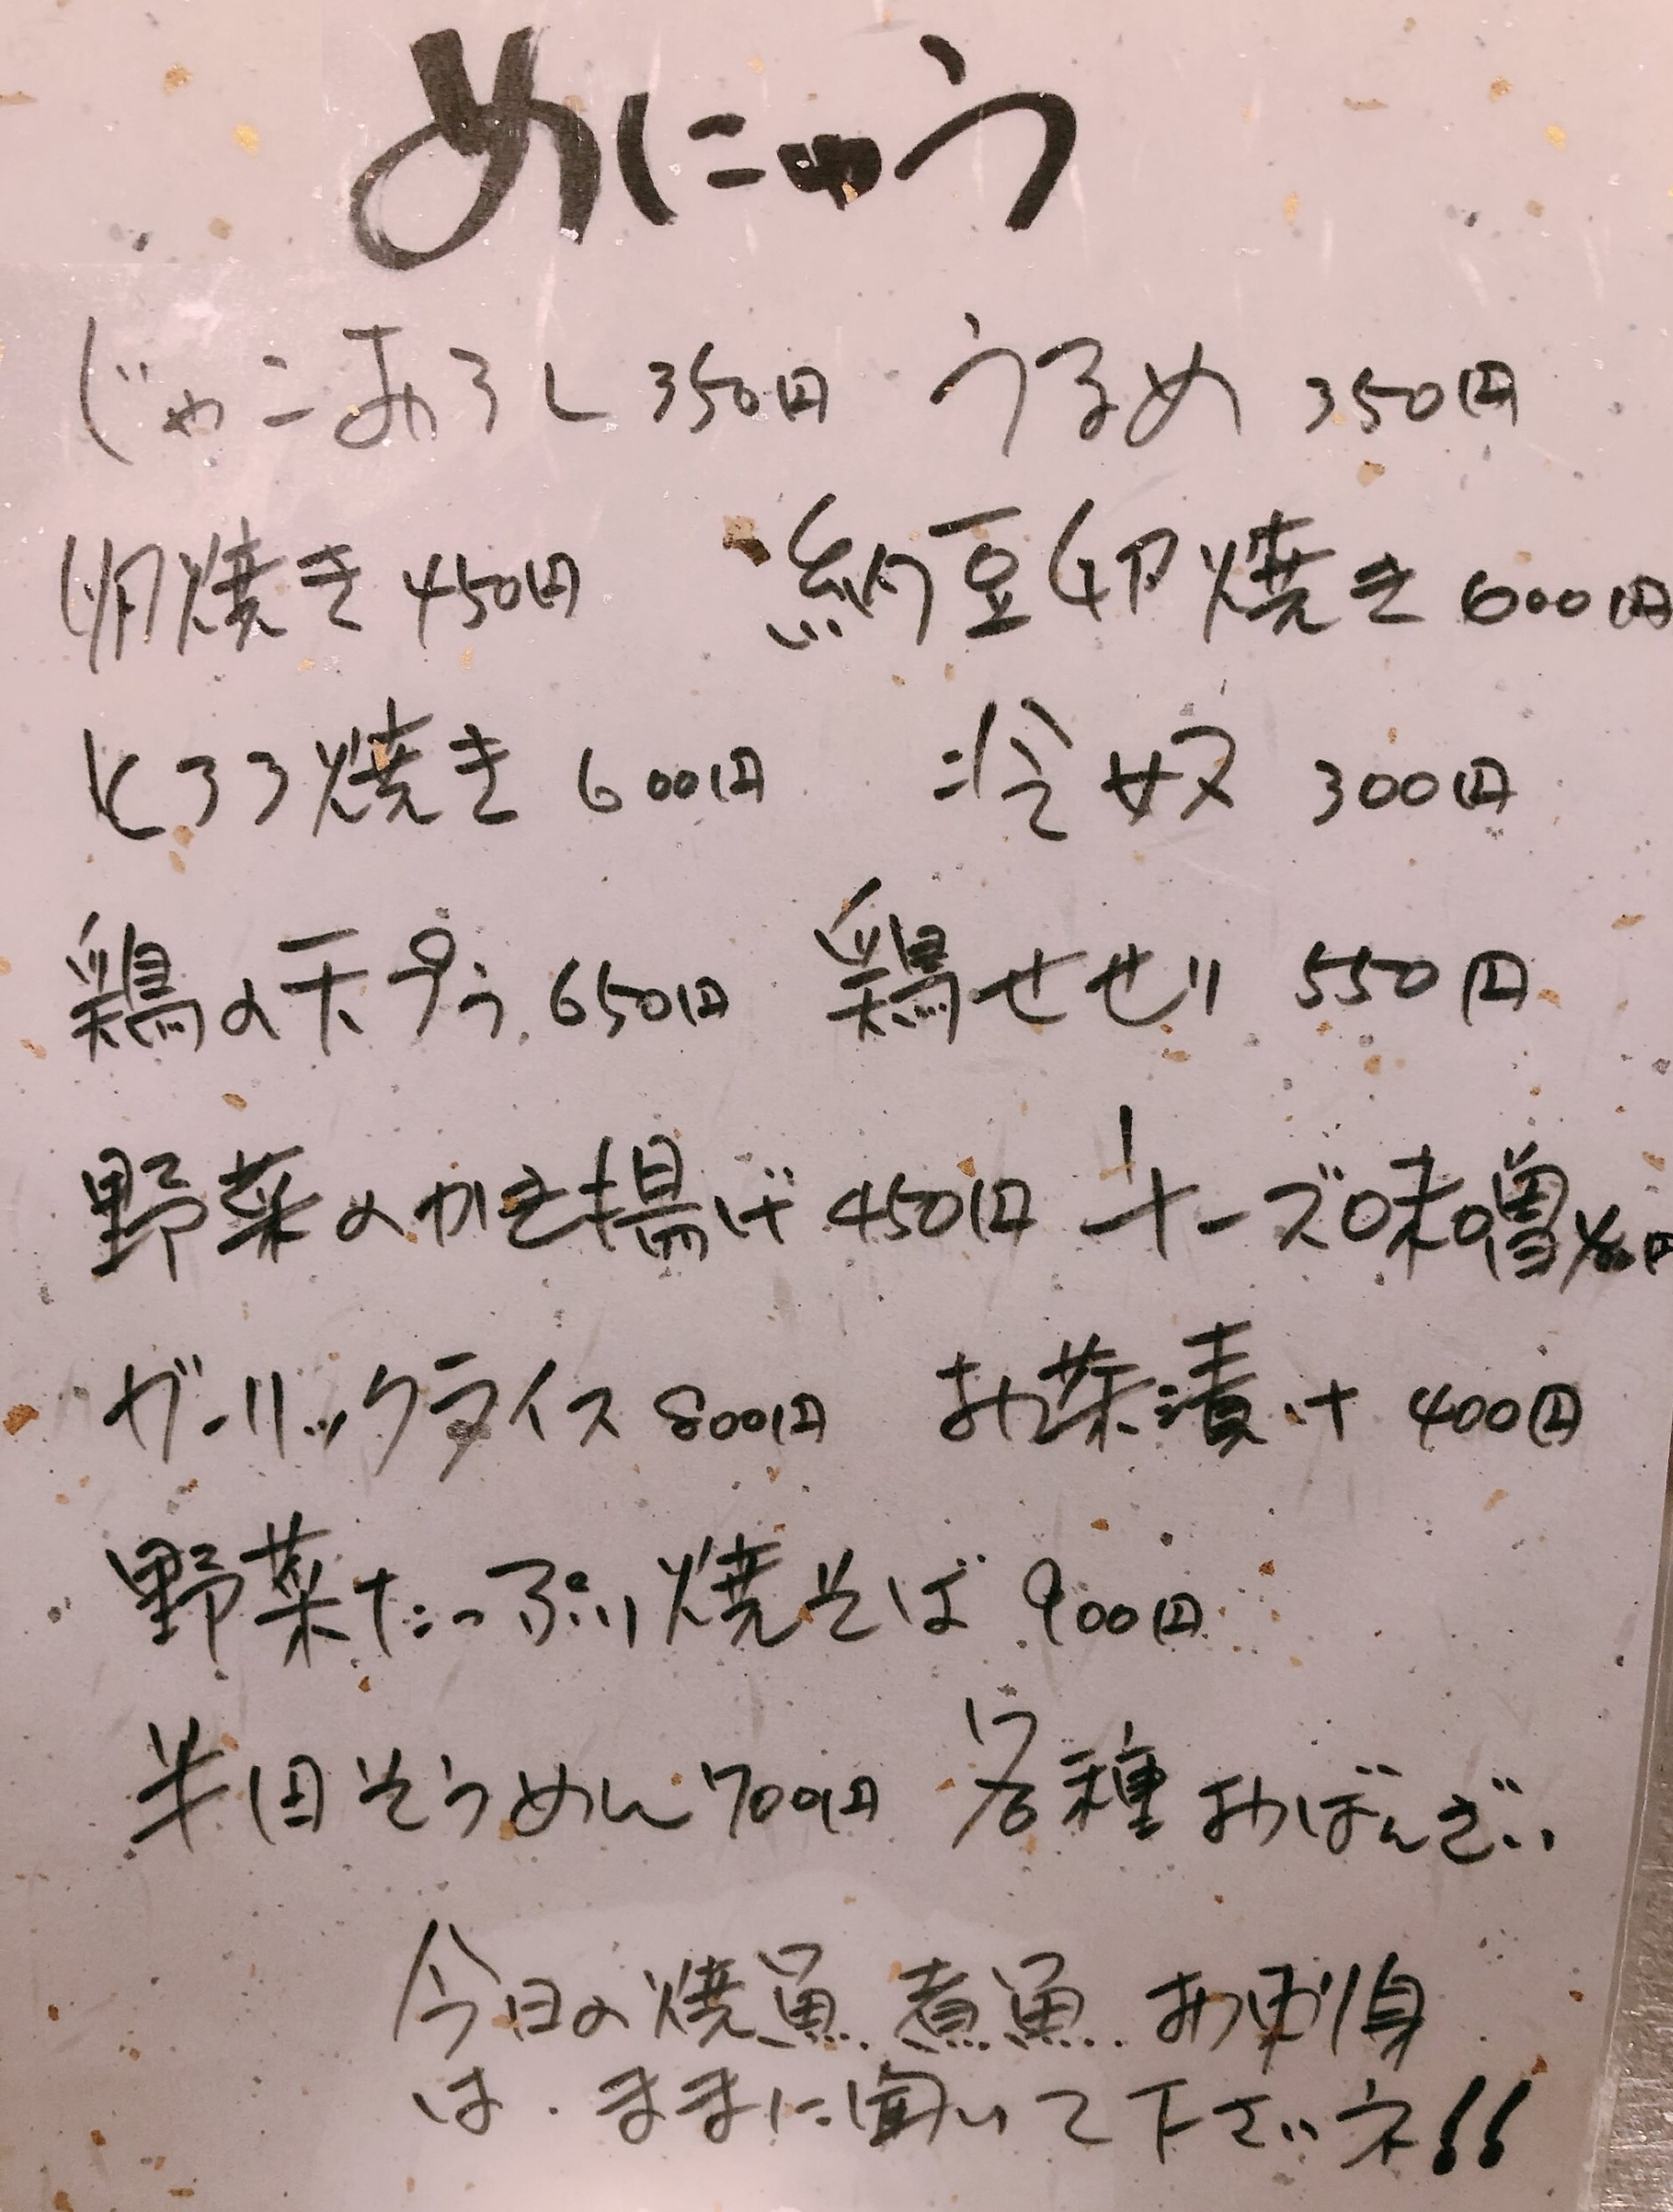 めにゅう
じゃこおろし 350円 うるめ 350円
卵焼き 450円 納豆卵焼き 600円
とろろ焼き 600円 冷奴 300円
鶏の天プラ 650円 鶏せせり 550円
野菜のかき揚げ 450円 チーズ味噌
ガーリックライス 800円 お茶漬け 400円
野菜たっぷり焼そば 900円
半田そうめん 700円 各種おばんざい
今日の焼魚 煮魚 お刺身
は、ままに聞いて下さいネ!!